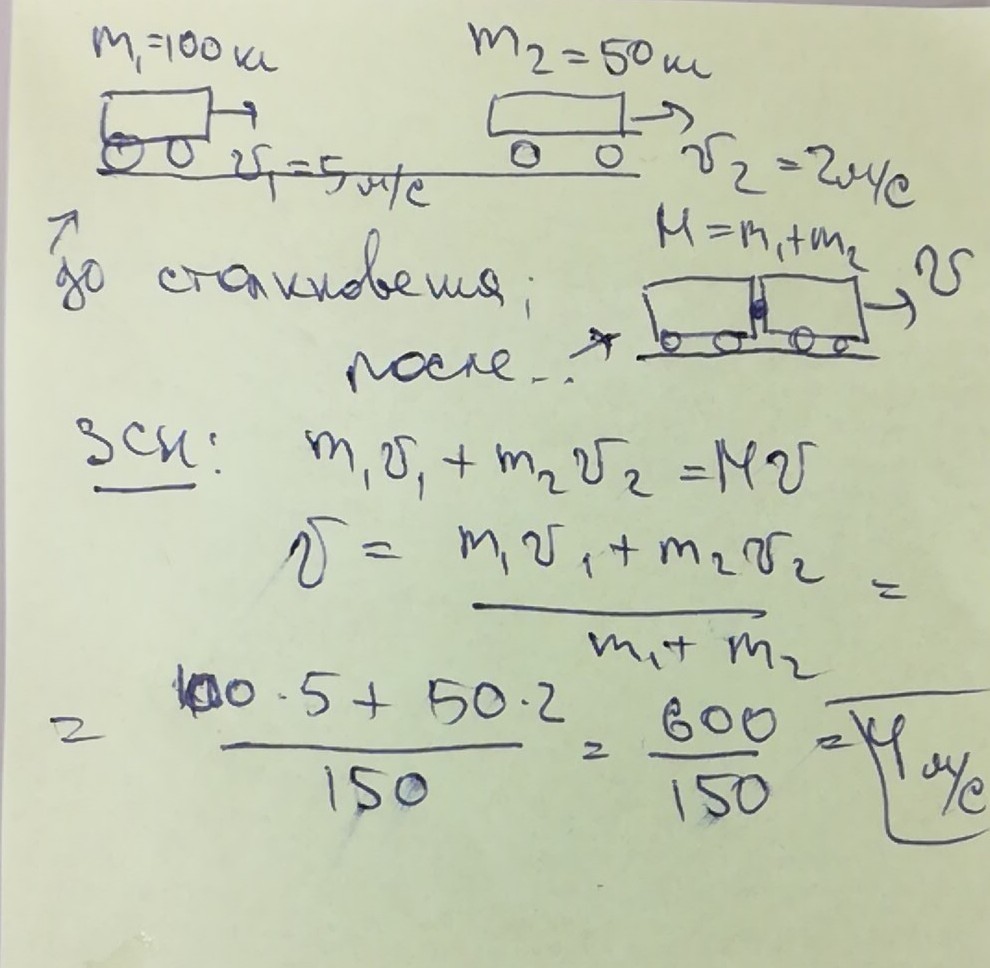 m₁=100кг m₂=50кг
v₁=5м/с v₂=2м/с
M=m₁+m₂
v
до столкновения;
после...
ЗСИ: m₁v₁+m₂v₂=Mv
v = (m₁v₁+m₂v₂)/(m₁+m₂) =
= (100·5+50·2)/150 = 600/150 = 4 м/с